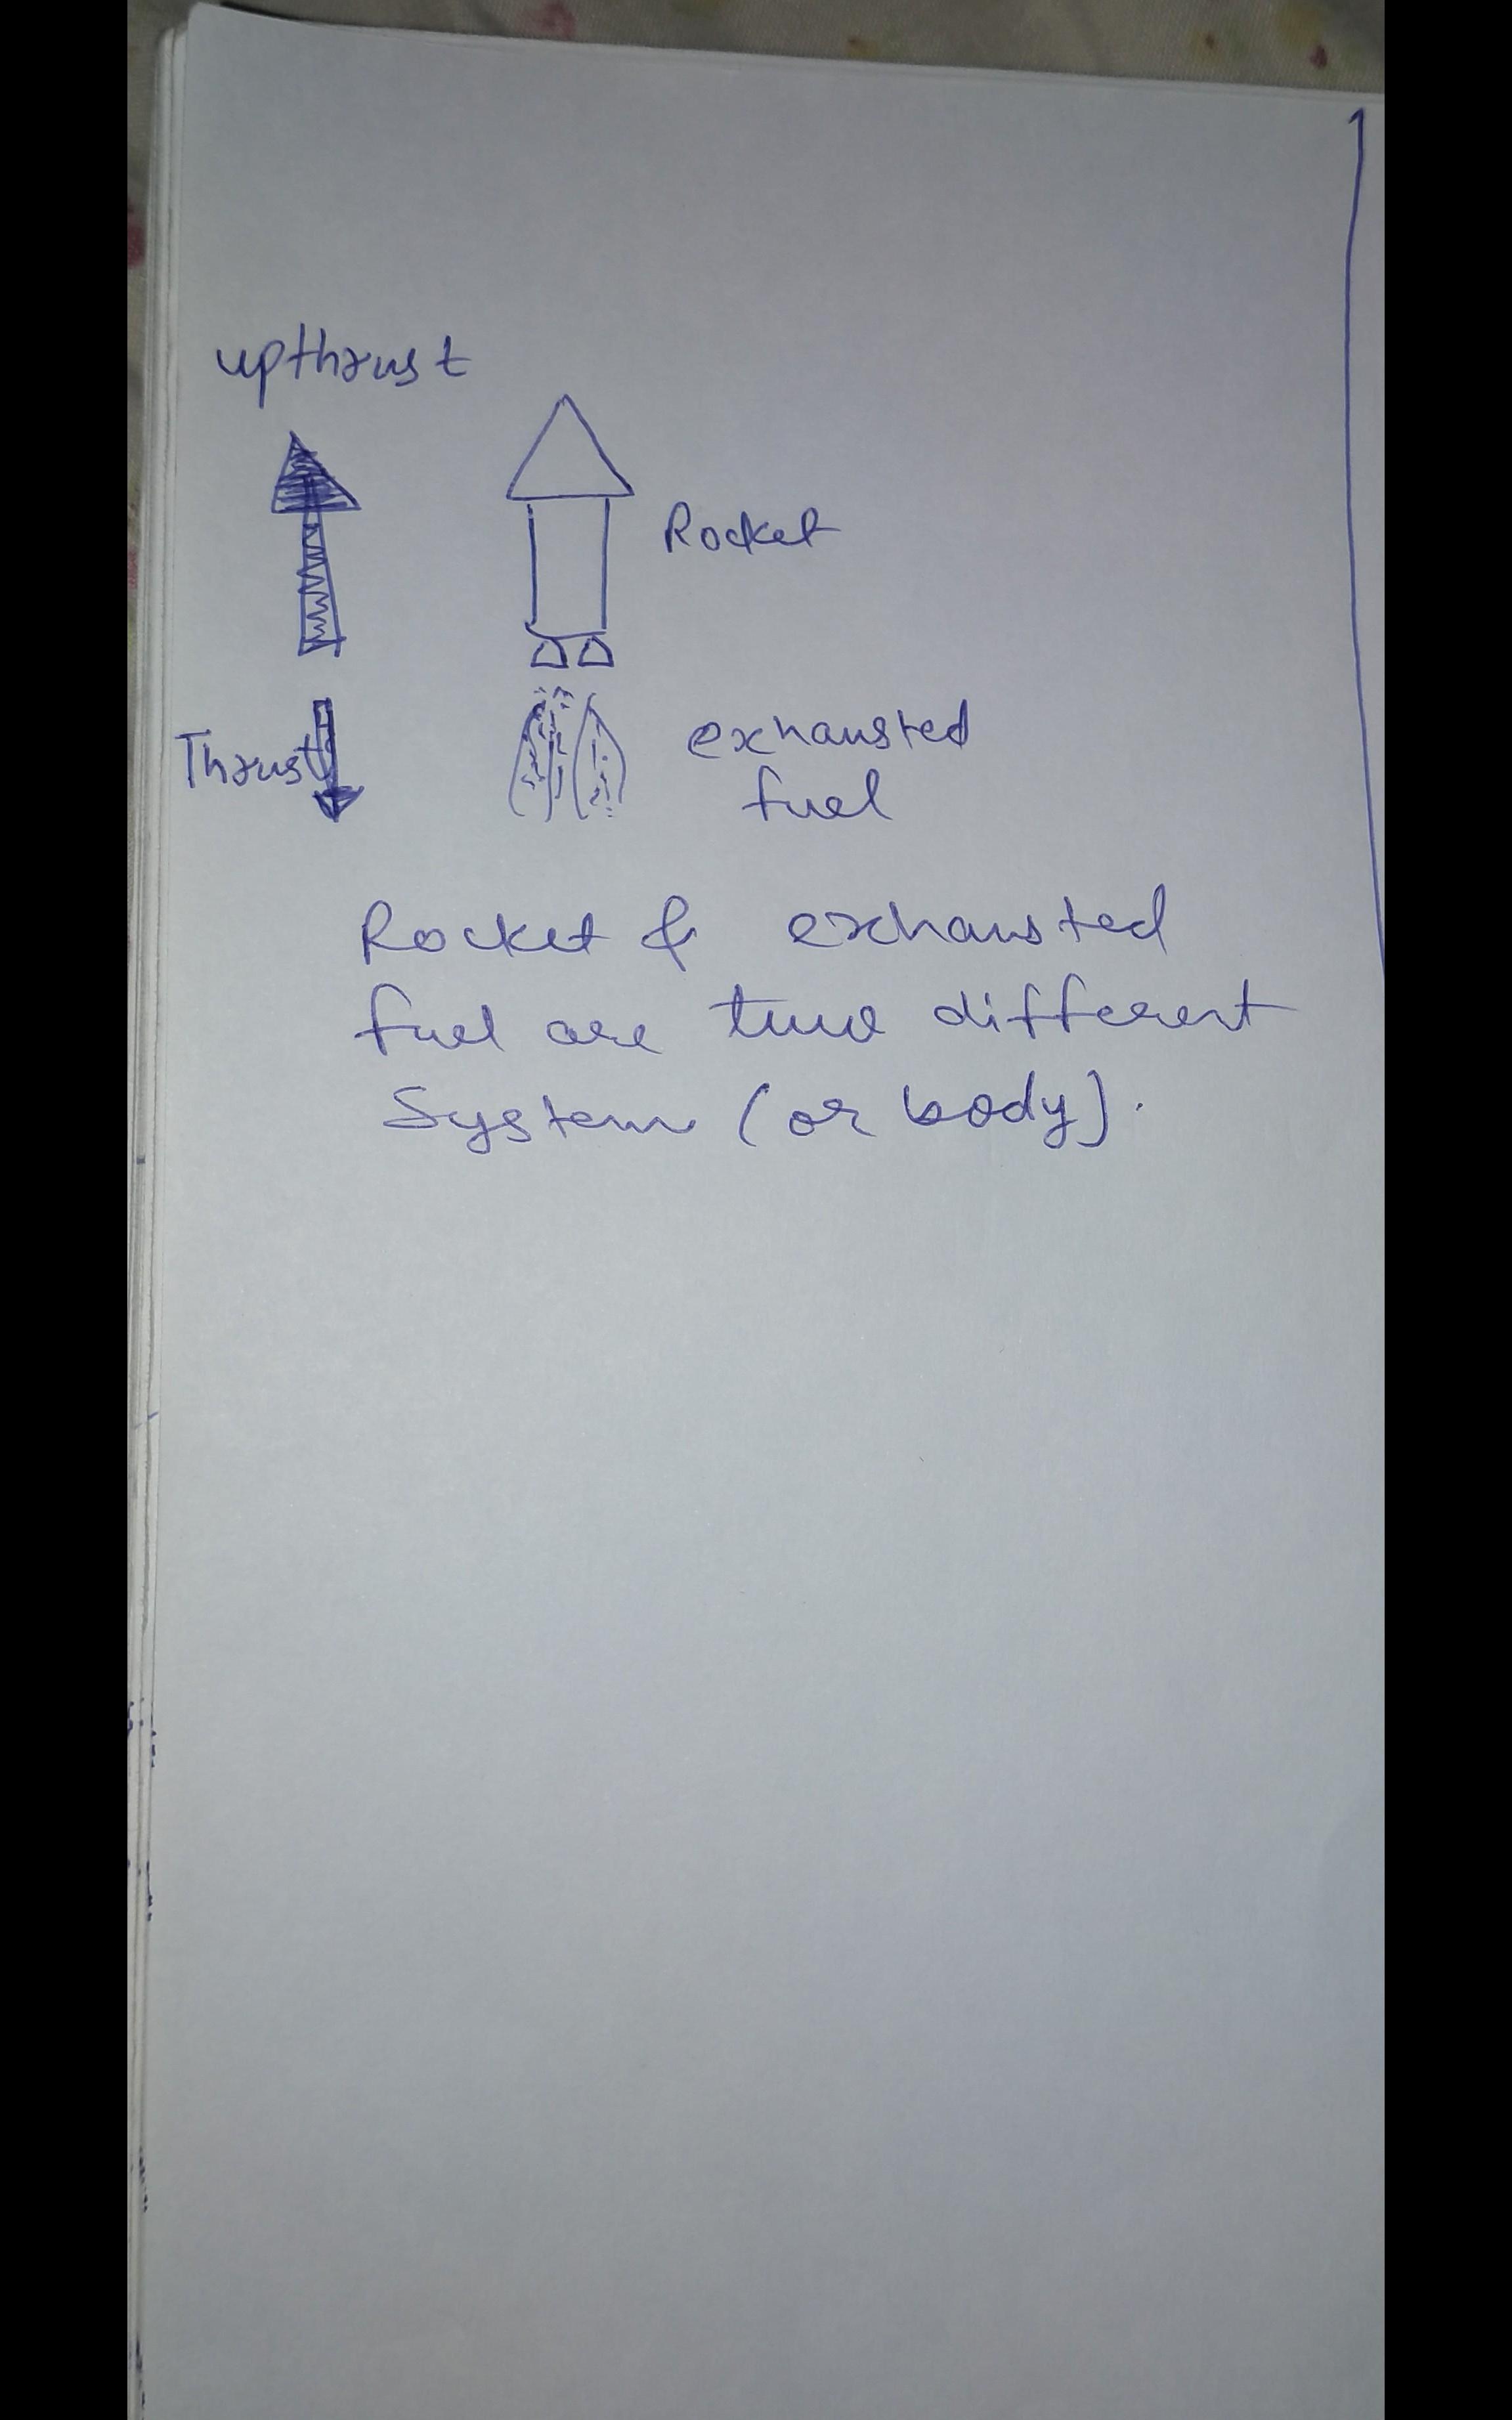 upthrust
Rocket
Thrust
exhausted
fuel
Rocket & exhausted
fuel are two different
System (or body).